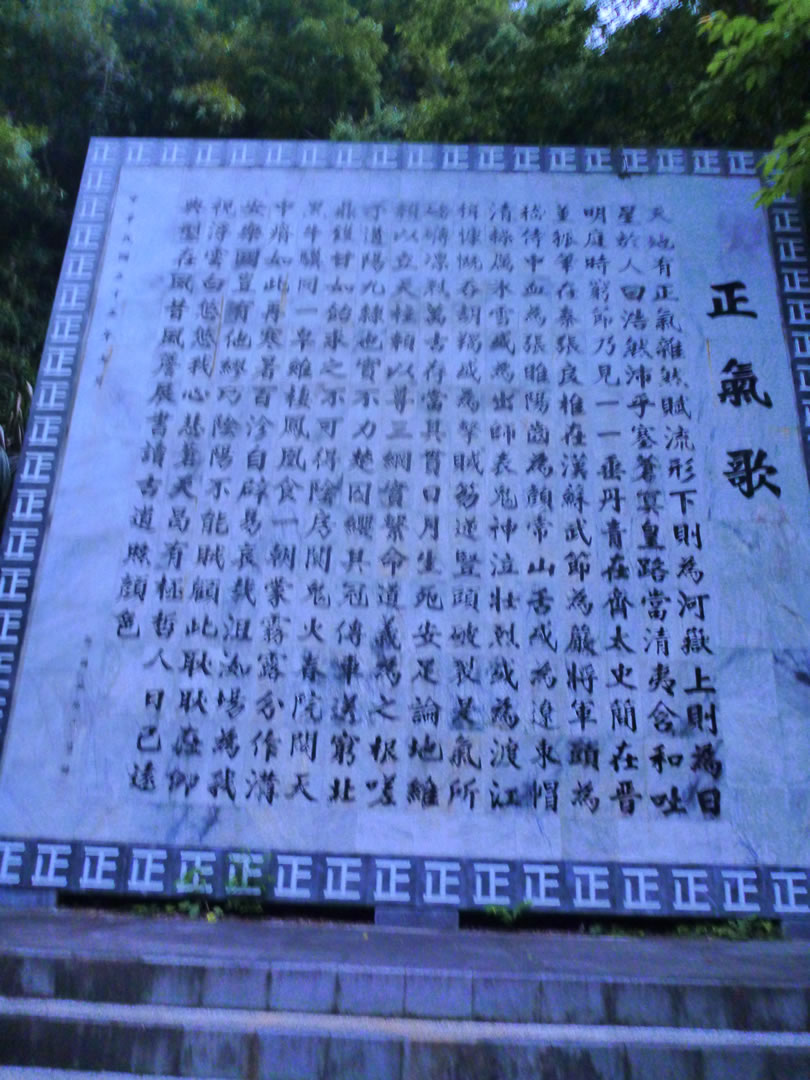 正氣歌
天地有正氣雜然賦流形下則為河嶽上則為日
星於人曰浩然沛乎塞蒼冥皇路當清夷含和吐
明庭時窮節乃見一一垂丹青在齊太史簡在晉
董狐筆在秦張良椎在漢蘇武節為嚴將軍頭為
嵇侍中血為張睢陽齒為顏常山舌或為遼東帽
清操厲冰雪或為出師表鬼神泣壯烈或為渡江
楫慷慨吞胡羯或為擊賊笏逆豎頭破裂是氣所
磅礡凜烈萬古存當其貫日月生死安足論地維
賴以立天柱賴以尊三綱實繫命道義為之根嗟
予遘陽九隸也實不力楚囚纓其冠傳車送窮北
鼎鑊甘如飴求之不可得陰房闃鬼火春院閟天
黑牛驥同一皁雞棲鳳凰食一朝蒙霧露分作溝
中瘠如此再寒暑百沴自辟易哀哉沮洳場為我
安樂國豈有他繆巧陰陽不能賊顧此耿耿在仰
視浮雲白悠悠我心悲蒼天曷有極哲人日已遠
典型在夙昔風簷展書讀古道照顏色